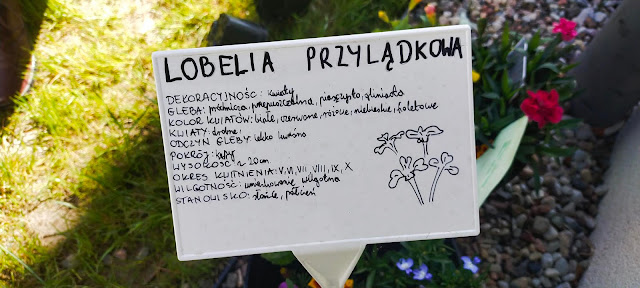 LOBELIA PRZYLĄDKOWA
DEKORACYJNOŚĆ: kwiaty
GLEBA: próchnicza, przepuszczalna, piaszczysto, gliniasta
KOLOR KWIATÓW: białe, czerwone, różowe, niebieskie, fioletowe
KWIATY: drobne,
ODCZYN GLEBY: lekko kwaśna
POKRÓJ: kępy
WYSOKOŚĆ: 20cm
OKRES KWITNIENIA: V, VI, VII, VIII, IX, X
WILGOTNOŚĆ: umiarkowanie wilgotna
STANOWISKO: słońce, półcień